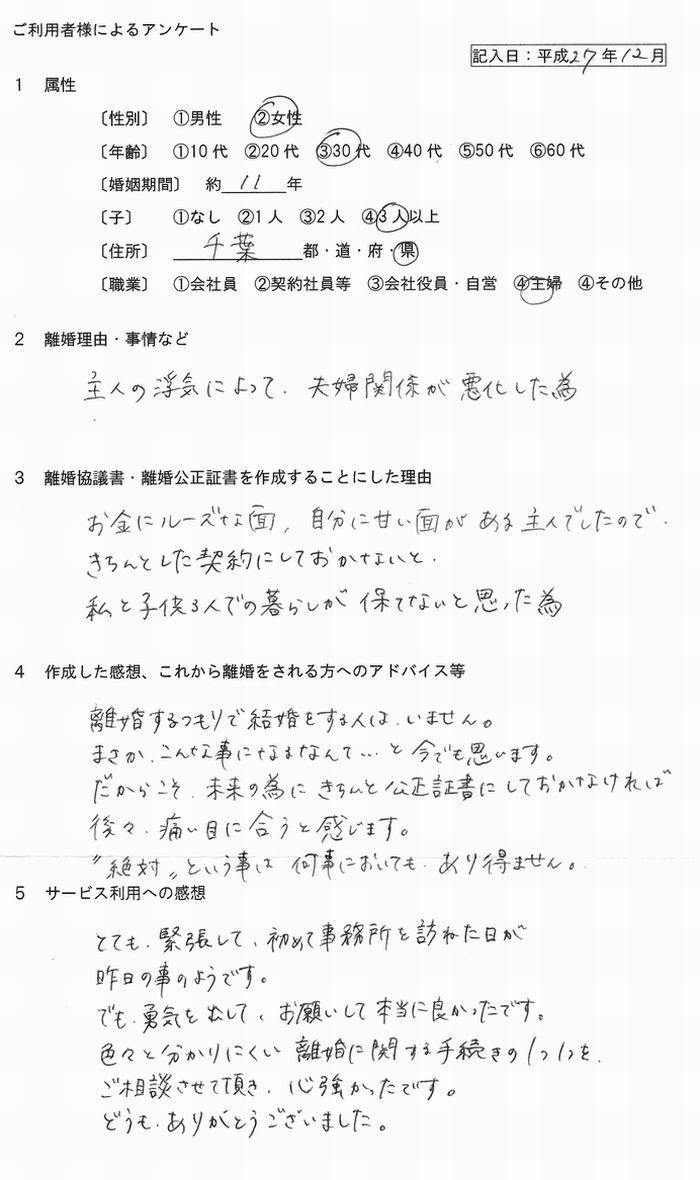 ご利用者様によるアンケート
記入日：平成27年12月
1 属性
〔性別〕 ①男性 ②女性
〔年齢〕 ①10代 ②20代 ③30代 ④40代 ⑤50代 ⑥60代
〔婚姻期間〕 約 11 年
〔子〕 ①なし ②1人 ③2人 ④3人以上
〔住所〕 千葉 都・道・府・県
〔職業〕 ①会社員 ②契約社員等 ③会社役員・自営 ④主婦 ④その他
2 離婚理由・事情など
主人の浮気によって、夫婦関係が悪化した為
3 離婚協議書・離婚公正証書を作成することにした理由
お金にルーズな面、自分に甘い面がある主人でしたので、
きちんとした契約にしておかないと、
私と子供3人での暮らしが保てないと思った為
4 作成した感想、これから離婚をされる方へのアドバイス等
離婚するつもりで結婚をする人は、いません。
まさか、こんな事になるなんて…と今でも思います。
だからこそ、未来の為にきちんと公正証書にしておかなければ
後々、痛い目に合うと感じます。
〝絶対〟という事は何事においても、あり得ません。
5 サービス利用への感想
とても、緊張して、初めて事務所を訪ねた日が
昨日の事のようです。
でも、勇気を出して、お願いして本当に良かったです。
色々と分かりにくい離婚に関する手続きの1つ1つを、
ご相談させて頂き、心強かったです。
どうも、ありがとうございました。